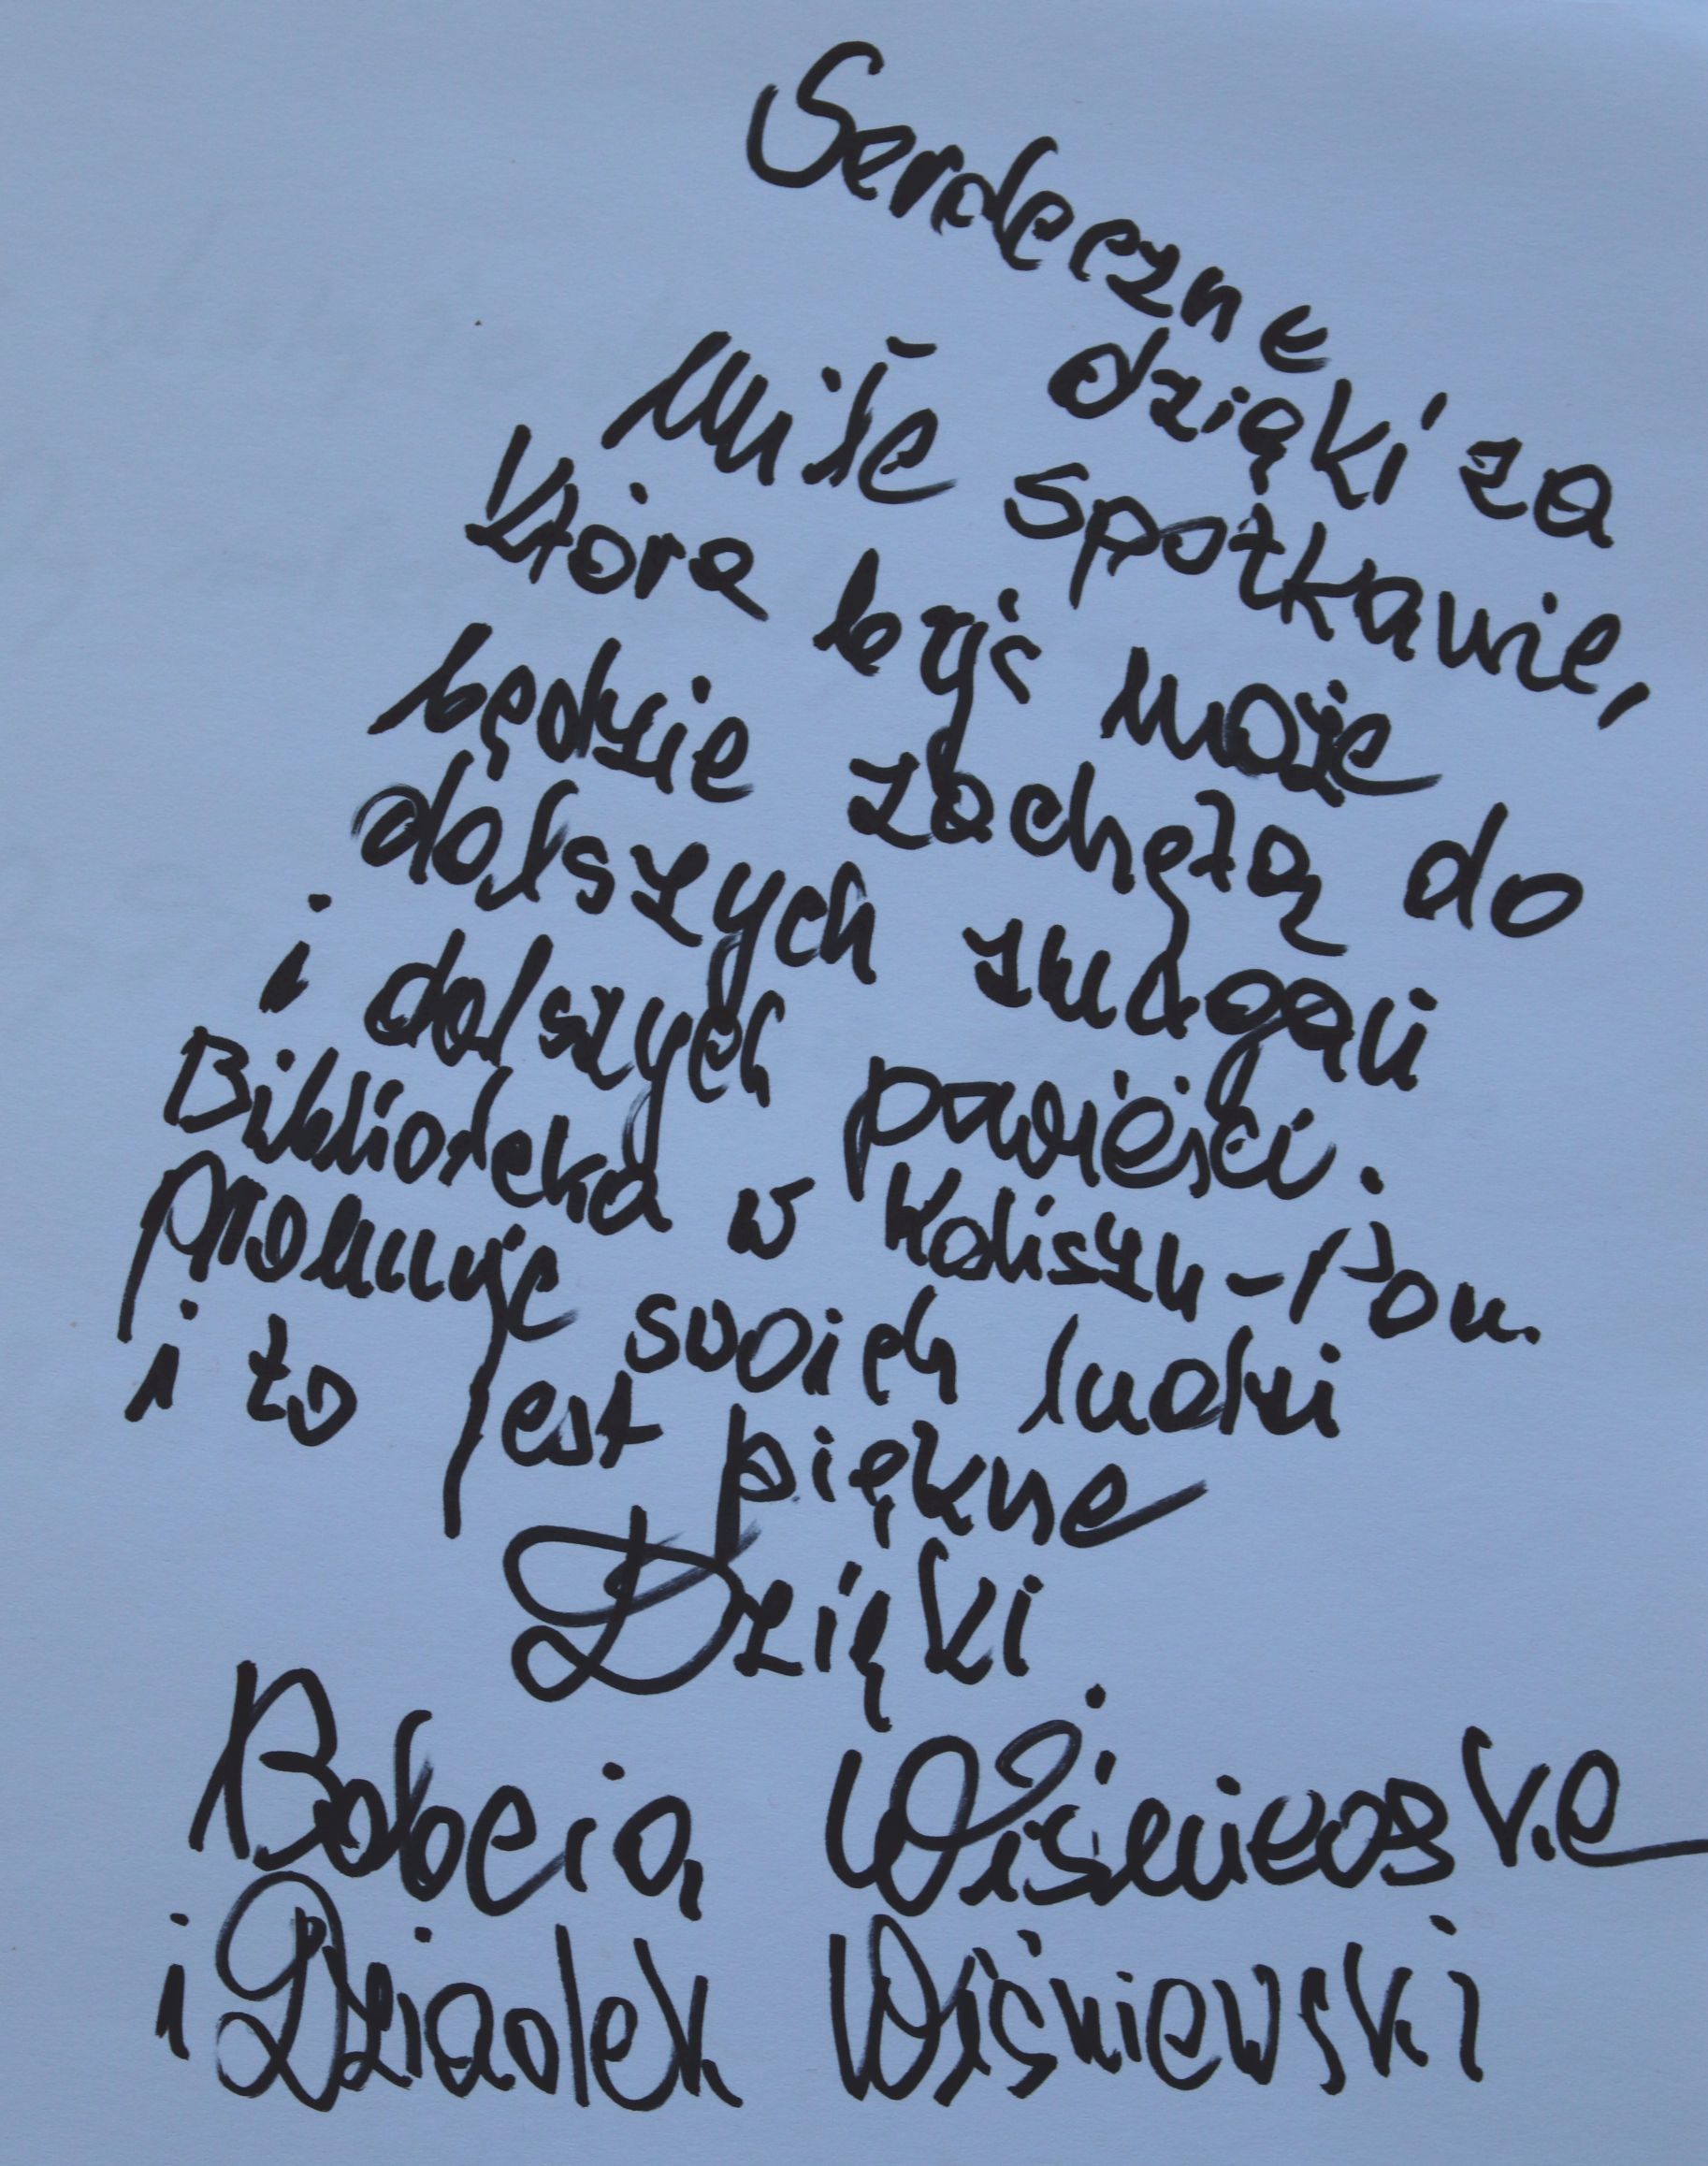 Serdeczne
dzięki za
miłe spotkanie,
które być może
będzie zachętą do
dalszych zmagań
i dalszych powieści.
Biblioteka w Kaliszu-Pom.
promuje swoich ludzi
i to jest piękne
Dzięki.
Babcia Wiśniewska
i Dziadek Wiśniewski